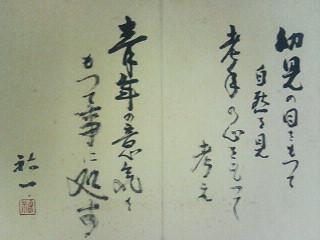 幼児の目をもって
自然を見
老年の心をもって
考え
青年の意気を
もつて事に処す